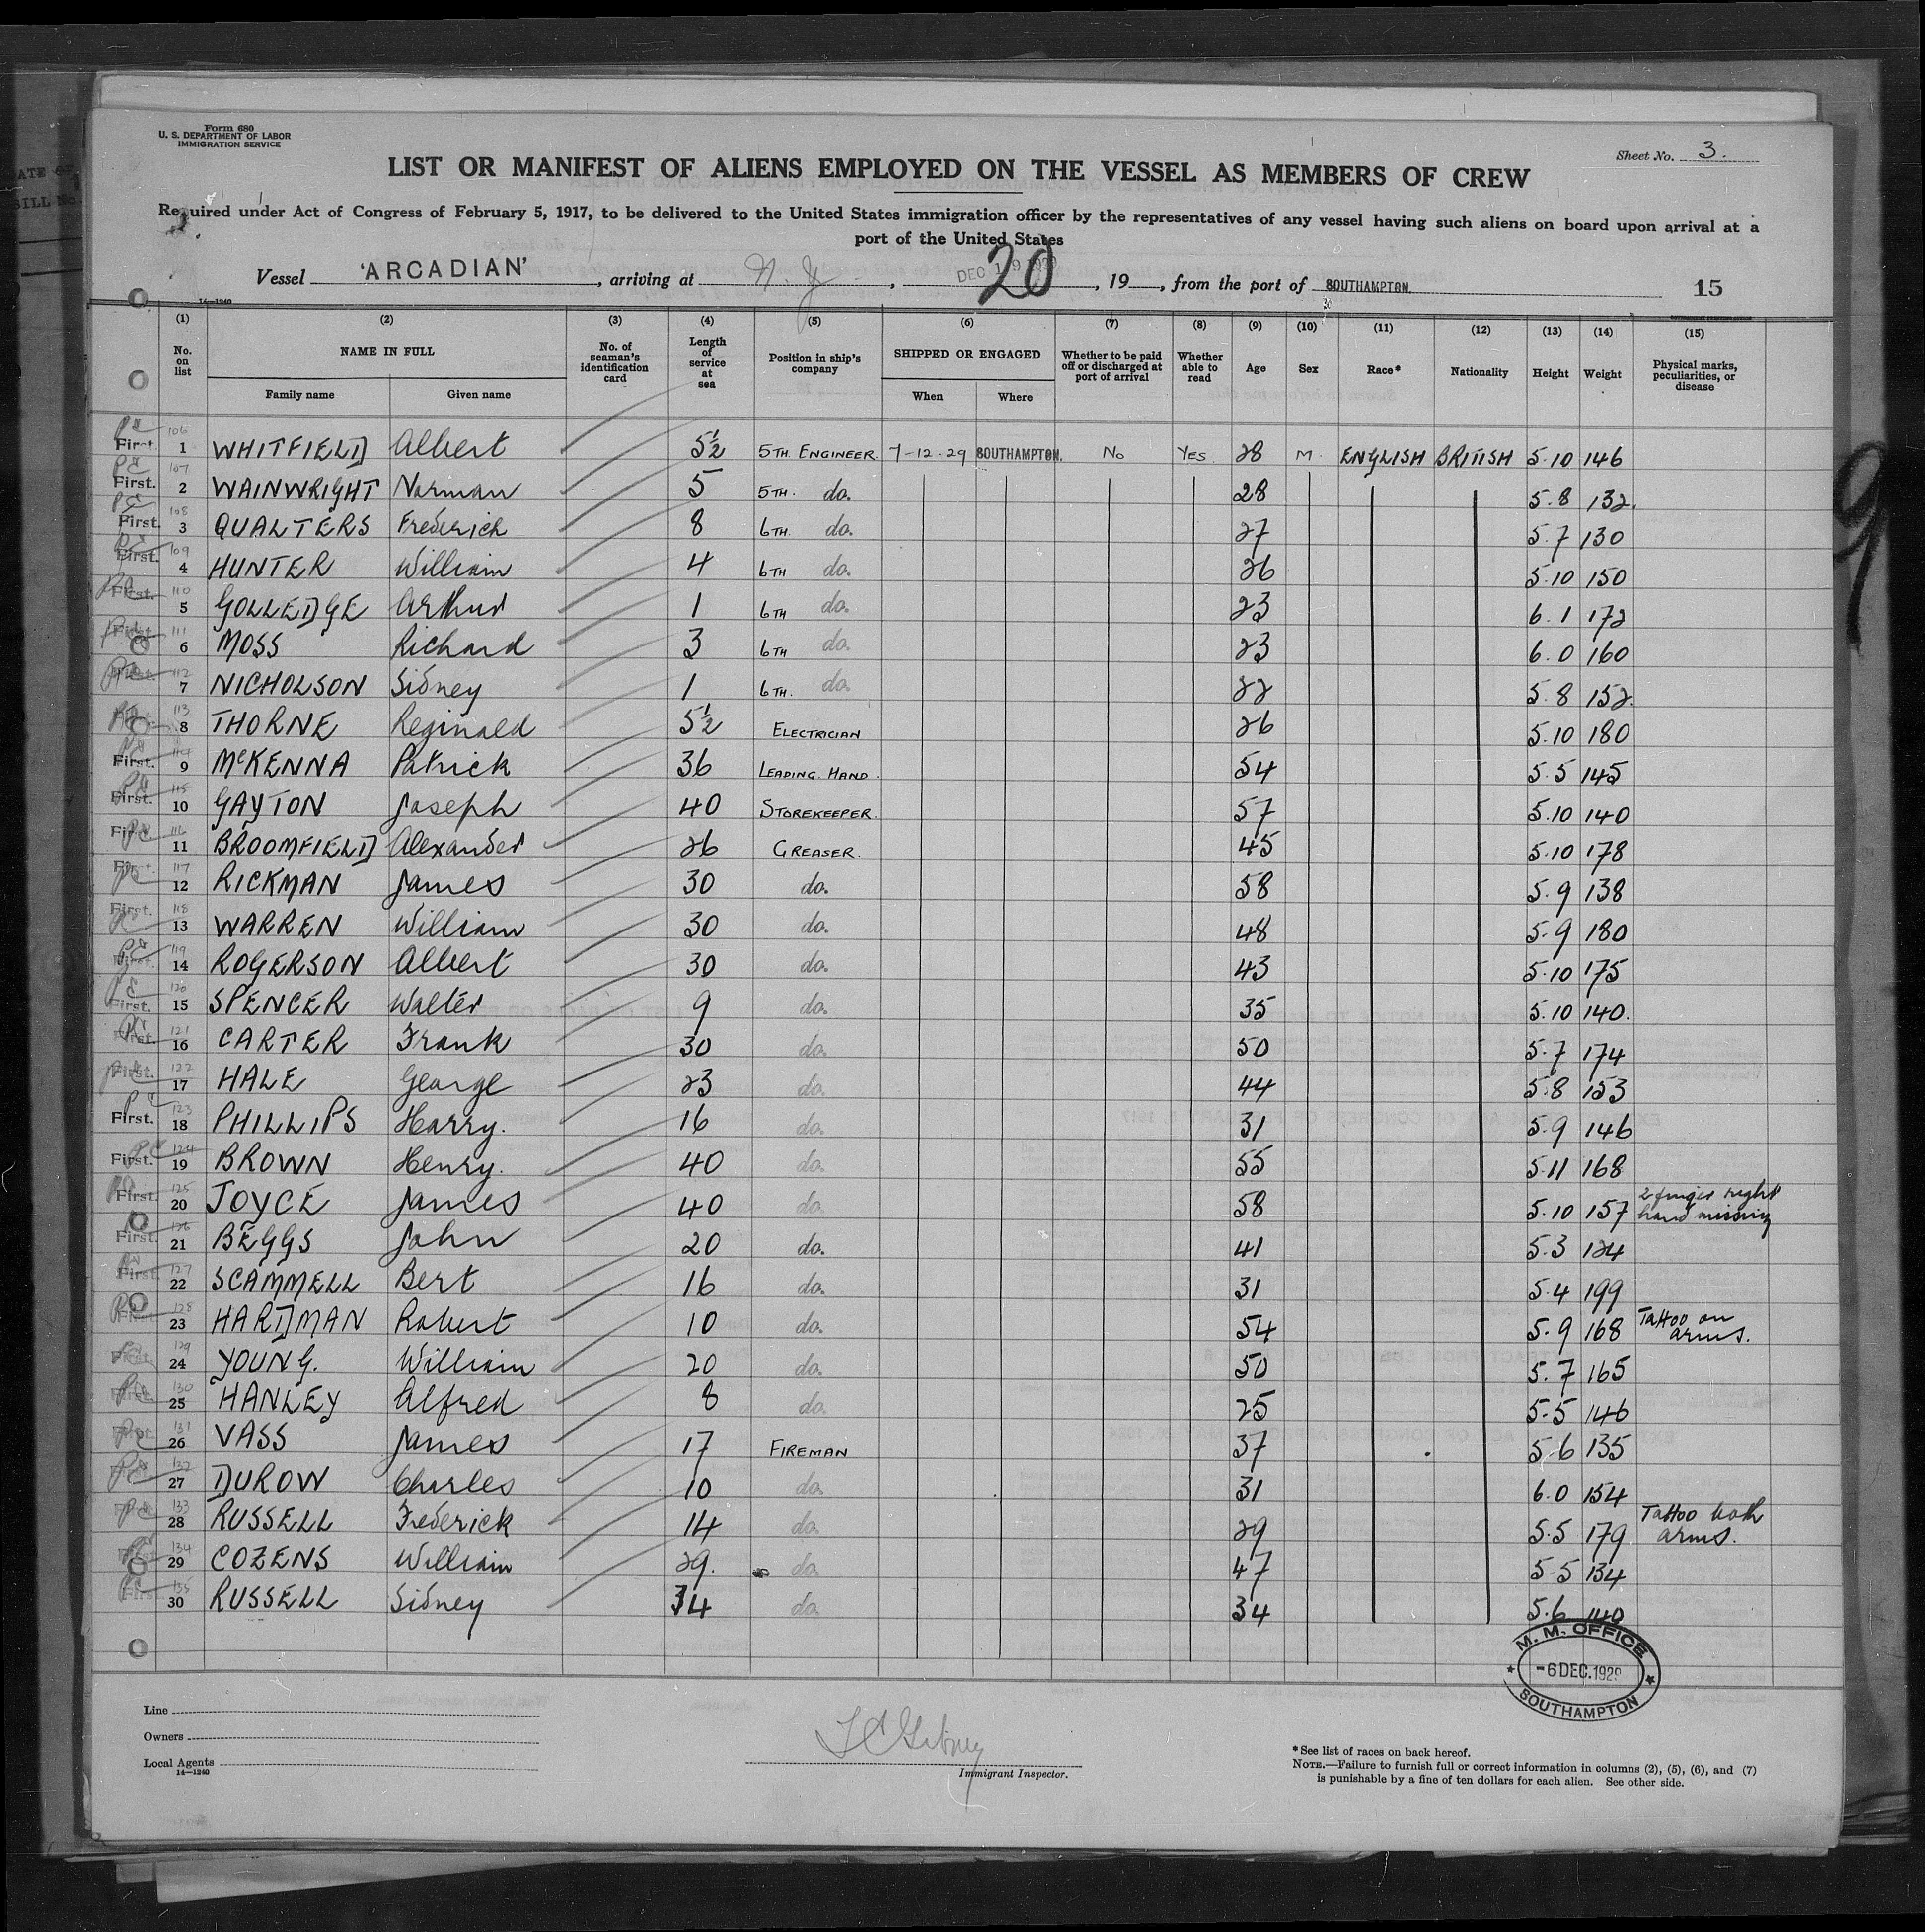 Form 680
U. S. DEPARTMENT OF LABOR
IMMIGRATION SERVICE
Sheet No. 3.
LIST OR MANIFEST OF ALIENS EMPLOYED ON THE VESSEL AS MEMBERS OF CREW
Required under Act of Congress of February 5, 1917, to be delivered to the United States immigration officer by the representatives of any vessel having such aliens on board upon arrival at a
port of the United States
Vessel 'ARCADIAN', arriving at N. Y., DEC 19 1929 20, 19, from the port of SOUTHAMPTON. 15
14—1240
(1) (2) (3) (4) (5) (6) (7) (8) (9) (10) (11) (12) (13) (14) (15)
No. on list NAME IN FULL No. of seaman's identification card Length of service at sea Position in ship's company SHIPPED OR ENGAGED Whether to be paid off or discharged at port of arrival Whether able to read Age Sex Race* Nationality Height Weight Physical marks, peculiarities, or disease
Family name Given name When Where
First. 106 1 WHITFIELD Albert 5½ 5TH ENGINEER. 7-12-29 SOUTHAMPTON. No YES. 28 M. ENGLISH BRITISH 5.10 146
First. 107 2 WAINWRIGHT Norman 5 5TH. do. 28 5.8 132.
First. 108 3 QUALTERS Frederich 8 6TH. do. 27 5.7 130
First. 109 4 HUNTER William 4 6TH do. 26 5.10 150
First. 110 5 GOLLEDGE Arthur 1 6TH do. 23 6.1 172
First. 111 6 MOSS Richard 3 6TH do. 23 6.0 160
First. 112 7 NICHOLSON Sidney 1 6TH. do. 22 5.8 152.
First. 113 8 THORNE Reginald 5½ ELECTRICIAN 26 5.10 180
First. 114 9 McKENNA Patrick 36 LEADING HAND. 54 5.5 145
First. 115 10 GAYTON Joseph 40 STOREKEEPER. 57 5.10 140
First. 116 11 BROOMFIELD Alexander 26 GREASER. 45 5.10 178
First. 117 12 RICKMAN James 30 do. 58 5.9 138
First. 118 13 WARREN William 30 do. 48 5.9 180
First. 119 14 ROGERSON Albert 30 do. 43 5.10 175
First. 120 15 SPENCER Walter 9 do. 35 5.10 140.
First. 121 16 CARTER Frank 30 do. 50 5.7 174
First. 122 17 HALE George 23 do. 44 5.8 153
First. 123 18 PHILLIPS Harry. 16 do. 31 5.9 146
First. 124 19 BROWN Henry. 40 do. 55 5.11 168
First. 125 20 JOYCE James 40 do. 58 5.10 157 2 finger right hand missing
First. 126 21 BEGGS John 20 do. 41 5.3 124
First. 127 22 SCAMMELL Bert 16 do. 31 5.4 199
First 128 23 HARDMAN Robert 10 do. 54 5.9 168 Tattoo on arms.
First 129 24 YOUNG. William 20 do. 50 5.7 165
First. 130 25 HANLEY Alfred 8 do. 25 5.5 146
First 131 26 VASS James 17 FIREMAN 37 5.6 135
First 132 27 DUROW Charles 10 do. 31 6.0 154
First 133 28 RUSSELL Frederick 14 do. 29 5.5 179 Tattoo both arms.
First 134 29 COZENS William 29. do. 47 5.5 134
First 135 30 RUSSELL Sidney 34 do. 34 5.6 140
M. M. OFFICE
-6 DEC. 1929
SOUTHAMPTON
Line
Owners
Local Agents
14—1240
Immigrant Inspector.
*See list of races on back hereof.
NOTE.—Failure to furnish full or correct information in columns (2), (5), (6), and (7)
is punishable by a fine of ten dollars for each alien. See other side.
9